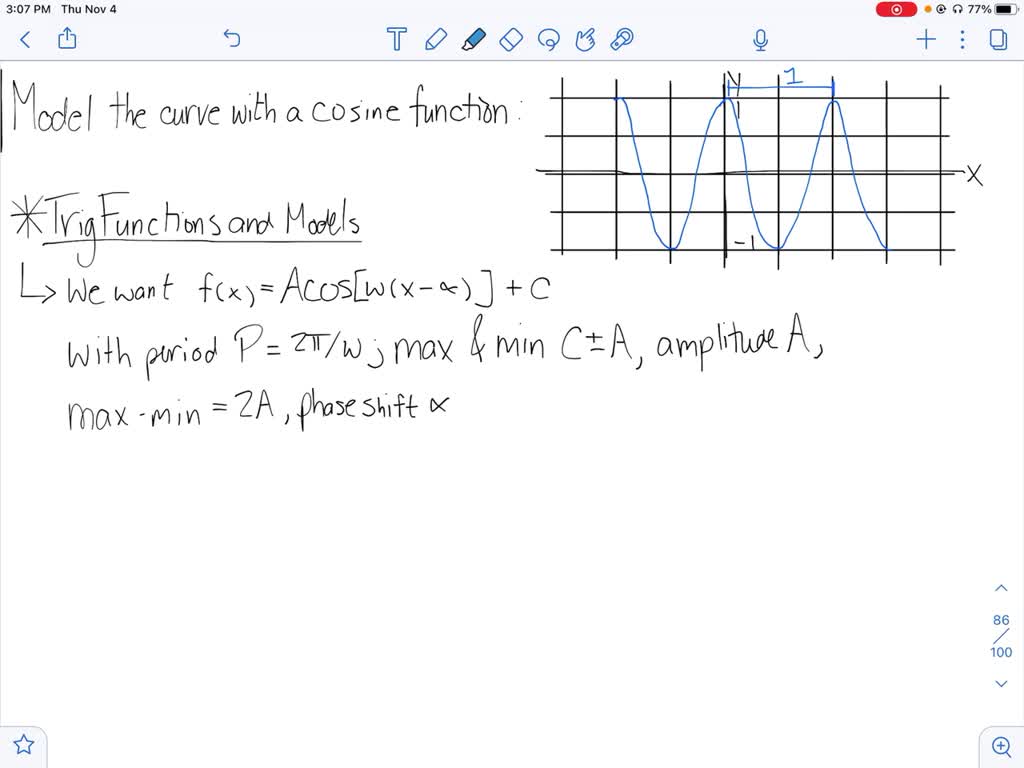 3:07 PM Thu Nov 4
77%
Model the curve with a cosine function:
y
1
1
X
-1
*Trig Functions and Models
↳ We want f(x) = Acos[w(x-α)] + C
with period P = 2π/w; max & min C±A, amplitude A,
max-min = 2A, phase shift α
86
100